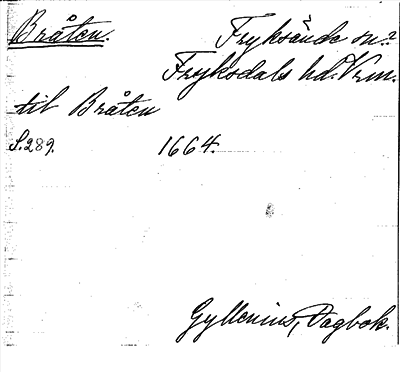 Bråten. Fryksände sn.?
Fryksdals hd. Vrm.
til Bråten
S. 289. 1664.
Gyllenius, Dagbok.